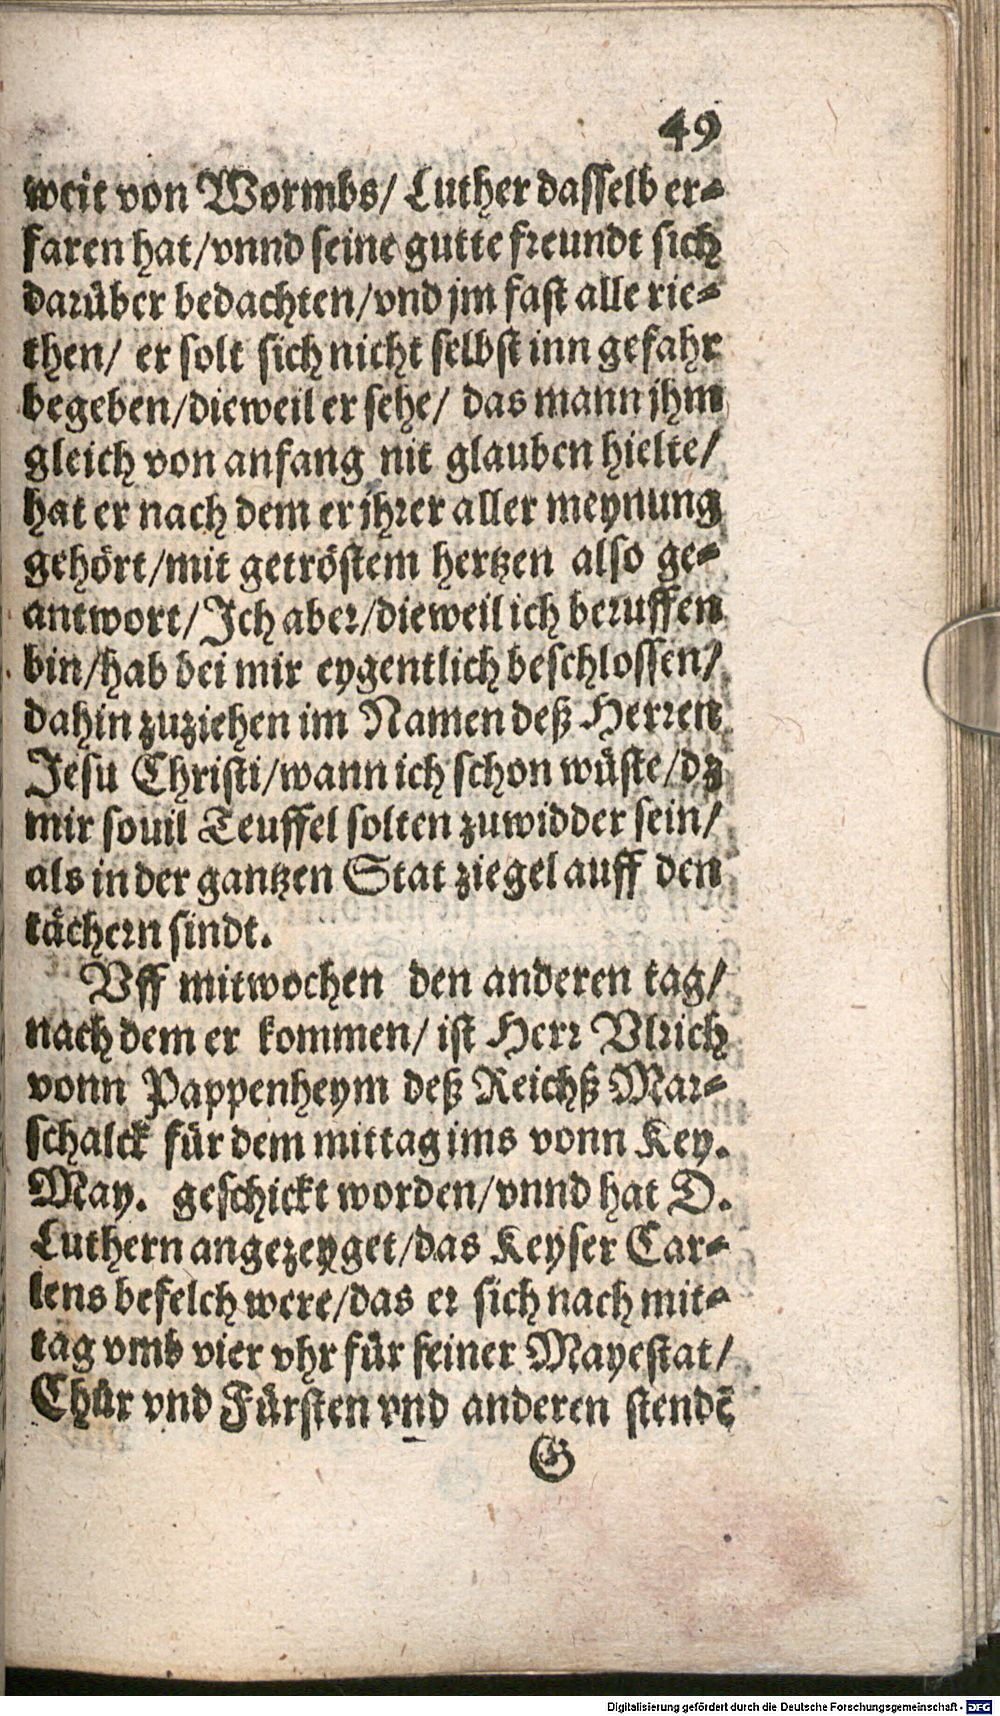 49
weit von Wormbs/ Luther dasselb er-
faren hat/vnnd seine gutte freundt sich
darüber bedachten/vnd jm fast alle rie-
then/ er solt sich nicht selbst inn gefahr
begeben/dieweil er sehe/ das mann jhm
gleich von anfang nit glauben hielte/
hat er nach dem er jhrer aller meynung
gehört/mit getröstem hertzen also ge-
antwort/Ich aber/dieweil ich beruffen
bin/hab bei mir eygentlich beschlossen/
dahin zuziehen im Namen deß Herren
Jesu Christi/wann ich schon wüste/dz
mir souil Teuffel solten zuwidder sein/
als in der gantzen Stat ziegel auff den
tächern sindt.
Vff mitwochen den anderen tag/
nach dem er kommen/ ist Herr Vlrich
vonn Pappenheym deß Reichß Mar-
schalck für dem mittag ims vonn Key.
May. geschickt worden/vnnd hat D.
Luthern angezeyget/das Keyser Car-
lens befelch were/das er sich nach mit-
tag vmb vier vhr für seiner Mayestat/
Chür vnd Fürsten vnd anderen stendē
G
Digitalisierung gefördert durch die Deutsche Forschungsgemeinschaft - DFG